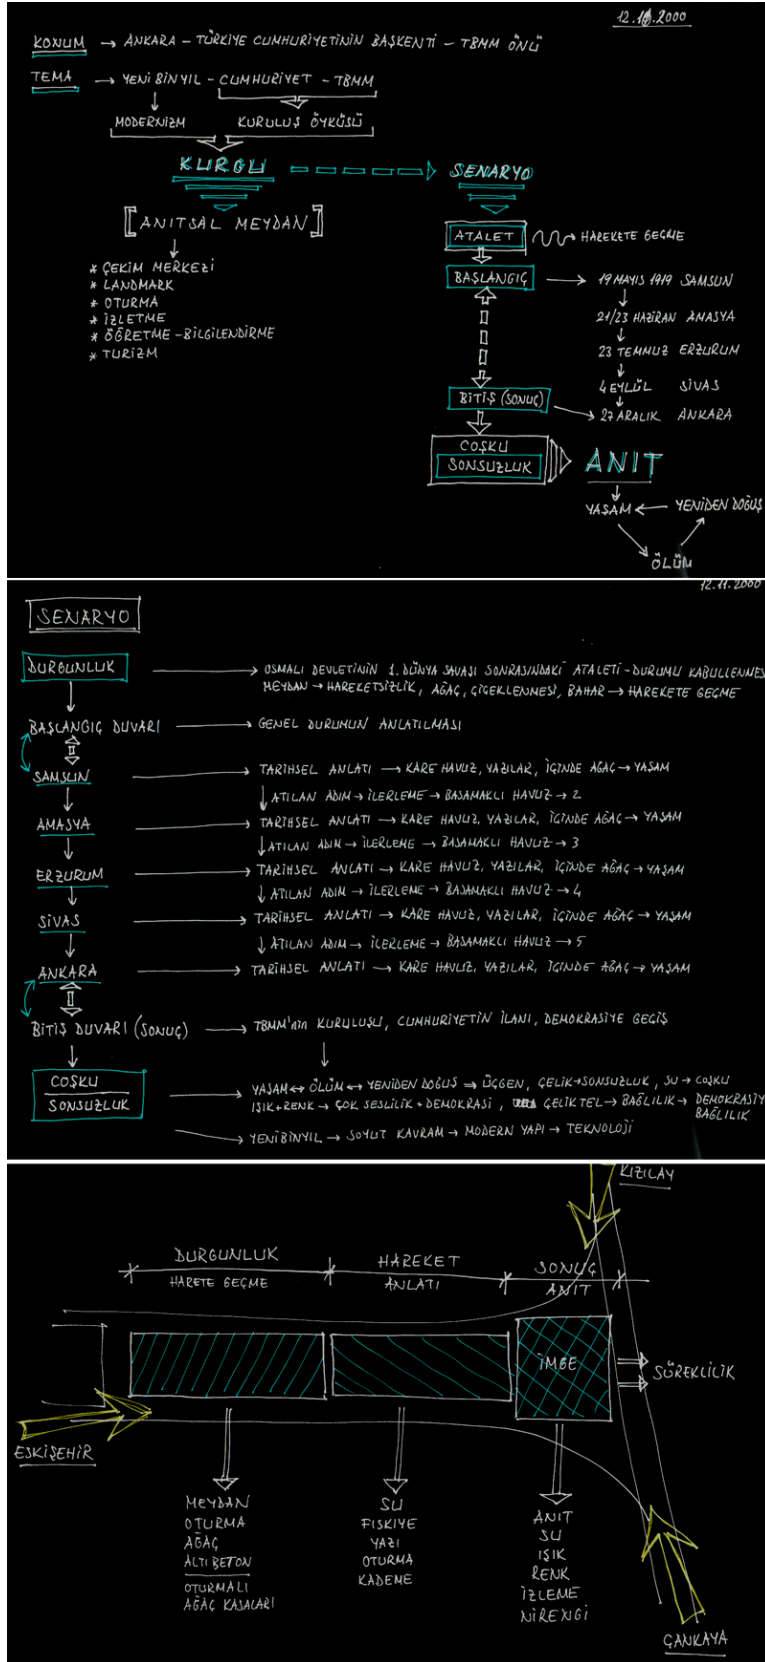 12.11.2000
KONUM → ANKARA – TÜRKİYE CUMHURİYETİNİN BAŞKENTİ – TBMM ÖNÜ
TEMA → YENİ BİN YIL – CUMHURİYET – TBMM
MODERNİZM KURULUŞ ÖYKÜSÜ
KURGU SENARYO
[ANITSAL MEYDAN]
* ÇEKİM MERKEZİ
* LANDMARK
* OTURMA
* İZLETME
* ÖĞRETME – BİLGİLENDİRME
* TURİZM
ATALET → HAREKETE GEÇME
BAŞLANGIÇ → 19 MAYIS 1919 SAMSUN
21/23 HAZİRAN AMASYA
23 TEMMUZ ERZURUM
4 EYLÜL SİVAS
BİTİŞ (SONUÇ) → 27 ARALIK ANKARA
COŞKU
SONSUZLUK
ANIT
YAŞAM ← YENİDEN DOĞUŞ
ÖLÜM
12.11.2000
SENARYO
DURGUNLUK → OSMALI DEVLETİNİN 1. DÜNYA SAVAŞI SONRASINDAKİ ATALETİ – DURUMU KABULLENMES
MEYDAN → HAREKETSİZLİK, AĞAÇ, ÇİÇEKLENMESİ, BAHAR → HAREKETE GEÇME
BAŞLANGIÇ DUVARI → GENEL DURUMUN ANLATILMASI
SAMSUN → TARİHSEL ANLATI → KARE HAVUZ, YAZILAR, İÇİNDE AĞAÇ → YAŞAM
↓ ATILAN ADIM → İLERLEME → BASAMAKLI HAVUZ → 2
AMASYA → TARİHSEL ANLATI → KARE HAVUZ, YAZILAR, İÇİNDE AĞAÇ → YAŞAM
↓ ATILAN ADIM → İLERLEME → BASAMAKLI HAVUZ → 3
ERZURUM → TARİHSEL ANLATI → KARE HAVUZ, YAZILAR, İÇİNDE AĞAÇ → YAŞAM
↓ ATILAN ADIM → İLERLEME → BASAMAKLI HAVUZ → 4
SİVAS → TARİHSEL ANLATI → KARE HAVUZ, YAZILAR, İÇİNDE AĞAÇ → YAŞAM
↓ ATILAN ADIM → İLERLEME → BASAMAKLI HAVUZ → 5
ANKARA → TARİHSEL ANLATI → KARE HAVUZ, YAZILAR, İÇİNDE AĞAÇ → YAŞAM
BİTİŞ DUVARI (SONUÇ) → TBMM'nin KURULUŞU, CUMHURİYETİN İLANI, DEMOKRASİYE GEÇİŞ
COŞKU
SONSUZLUK
YAŞAM ↔ ÖLÜM ↔ YENİDEN DOĞUŞ ⇒ ÜÇGEN, ÇELİK → SONSUZLUK, SU → COŞKU
IŞIK + RENK → ÇOK SESLİLİK + DEMOKRASİ, ÇELİK TEL → BAĞLILIK → DEMOKRASİY
BAĞLILIK
→ YENİ BİN YIL → SOYUT KAVRAM → MODERN YAPI → TEKNOLOJİ
KIZILAY
DURGUNLUK HAREKET SONUÇ
HARETE GEÇME ANLATI ANIT
İMGE
SÜREKLİLİK
ESKİŞEHİR
MEYDAN
OTURMA
AĞAÇ
ALTI BETON
OTURMALI
AĞAÇ KASALARI
SU
FISKİYE
YAZI
OTURMA
KADEME
ANIT
SU
IŞIK
RENK
İZLEME
NİRENGİ
ÇANKAYA